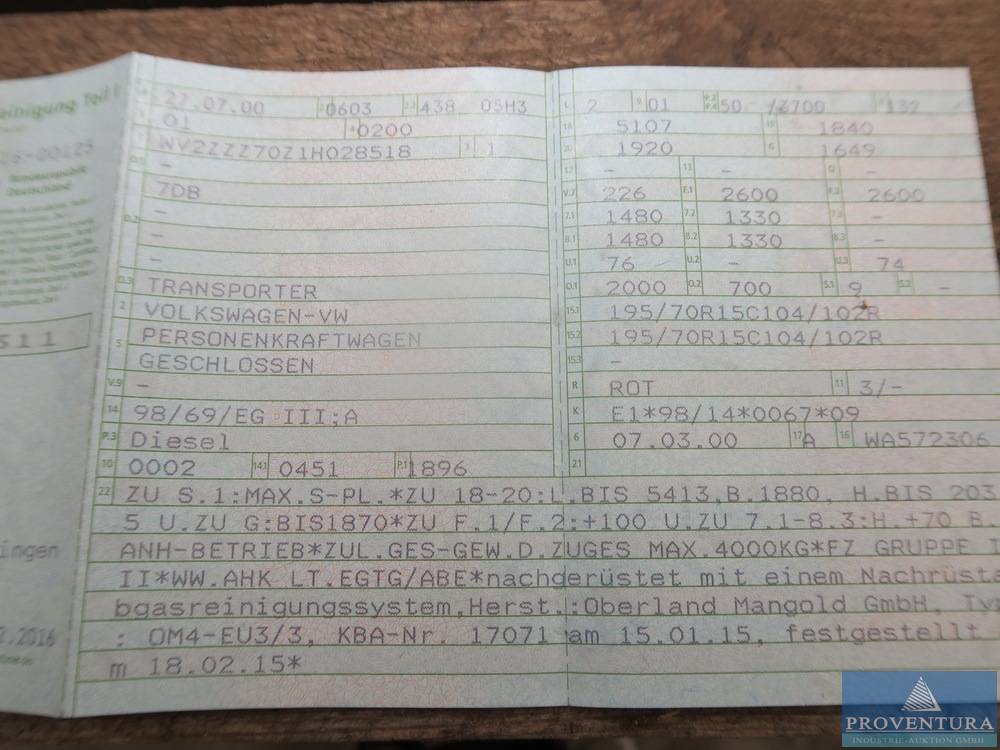 einigung Teil I
16-00125
Bundesrepublik
Deutschland
511
ingen
2.2016
27.07.00 2.1 0603 2.2 438 05H3
01 4 0200
WV2ZZZ70Z1H028518 3 1
7DB
-
D.2 -
-
D.3 TRANSPORTER
2 VOLKSWAGEN-VW
5 PERSONENKRAFTWAGEN
GESCHLOSSEN
V.9 -
14 98/69/EG III;A
P.3 Diesel
10 0002 14.1 0451 P.1 1896
L 2 9 01 P.2 P.4 50 /3700 T 132
18 5107 19 1840
20 1920 G 1649
12 - 13 - Q -
V.7 226 F.1 2600 F.2 2600
7.1 1480 7.2 1330 7.3 -
8.1 1480 8.2 1330 8.3 -
U.1 76 U.2 - U.3 74
O.1 2000 O.2 700 S.1 9 S.2 -
15.1 195/70R15C104/102R
15.2 195/70R15C104/102R
15.3 -
R ROT 11 3/-
K E1*98/14*0067*09
6 07.03.00 17 A 16 WA572306
21
22 ZU S.1:MAX.S-PL.*ZU 18-20:L.BIS 5413,B.1880, H.BIS 203
5 U.ZU G:BIS1870*ZU F.1/F.2:+100 U.ZU 7.1-8.3:H.+70 B.
ANH-BETRIEB*ZUL.GES-GEW.D.ZUGES MAX.4000KG*FZ GRUPPE I
II*WW.AHK LT.EGTG/ABE*nachgerüstet mit einem Nachrüsta
bgasreinigungssystem,Herst.:Oberland Mangold GmbH, Typ
: OM4-EU3/3, KBA-Nr. 17071 am 15.01.15, festgestellt
m 18.02.15*
PROVENTURA
INDUSTRIE-AUKTION GMBH